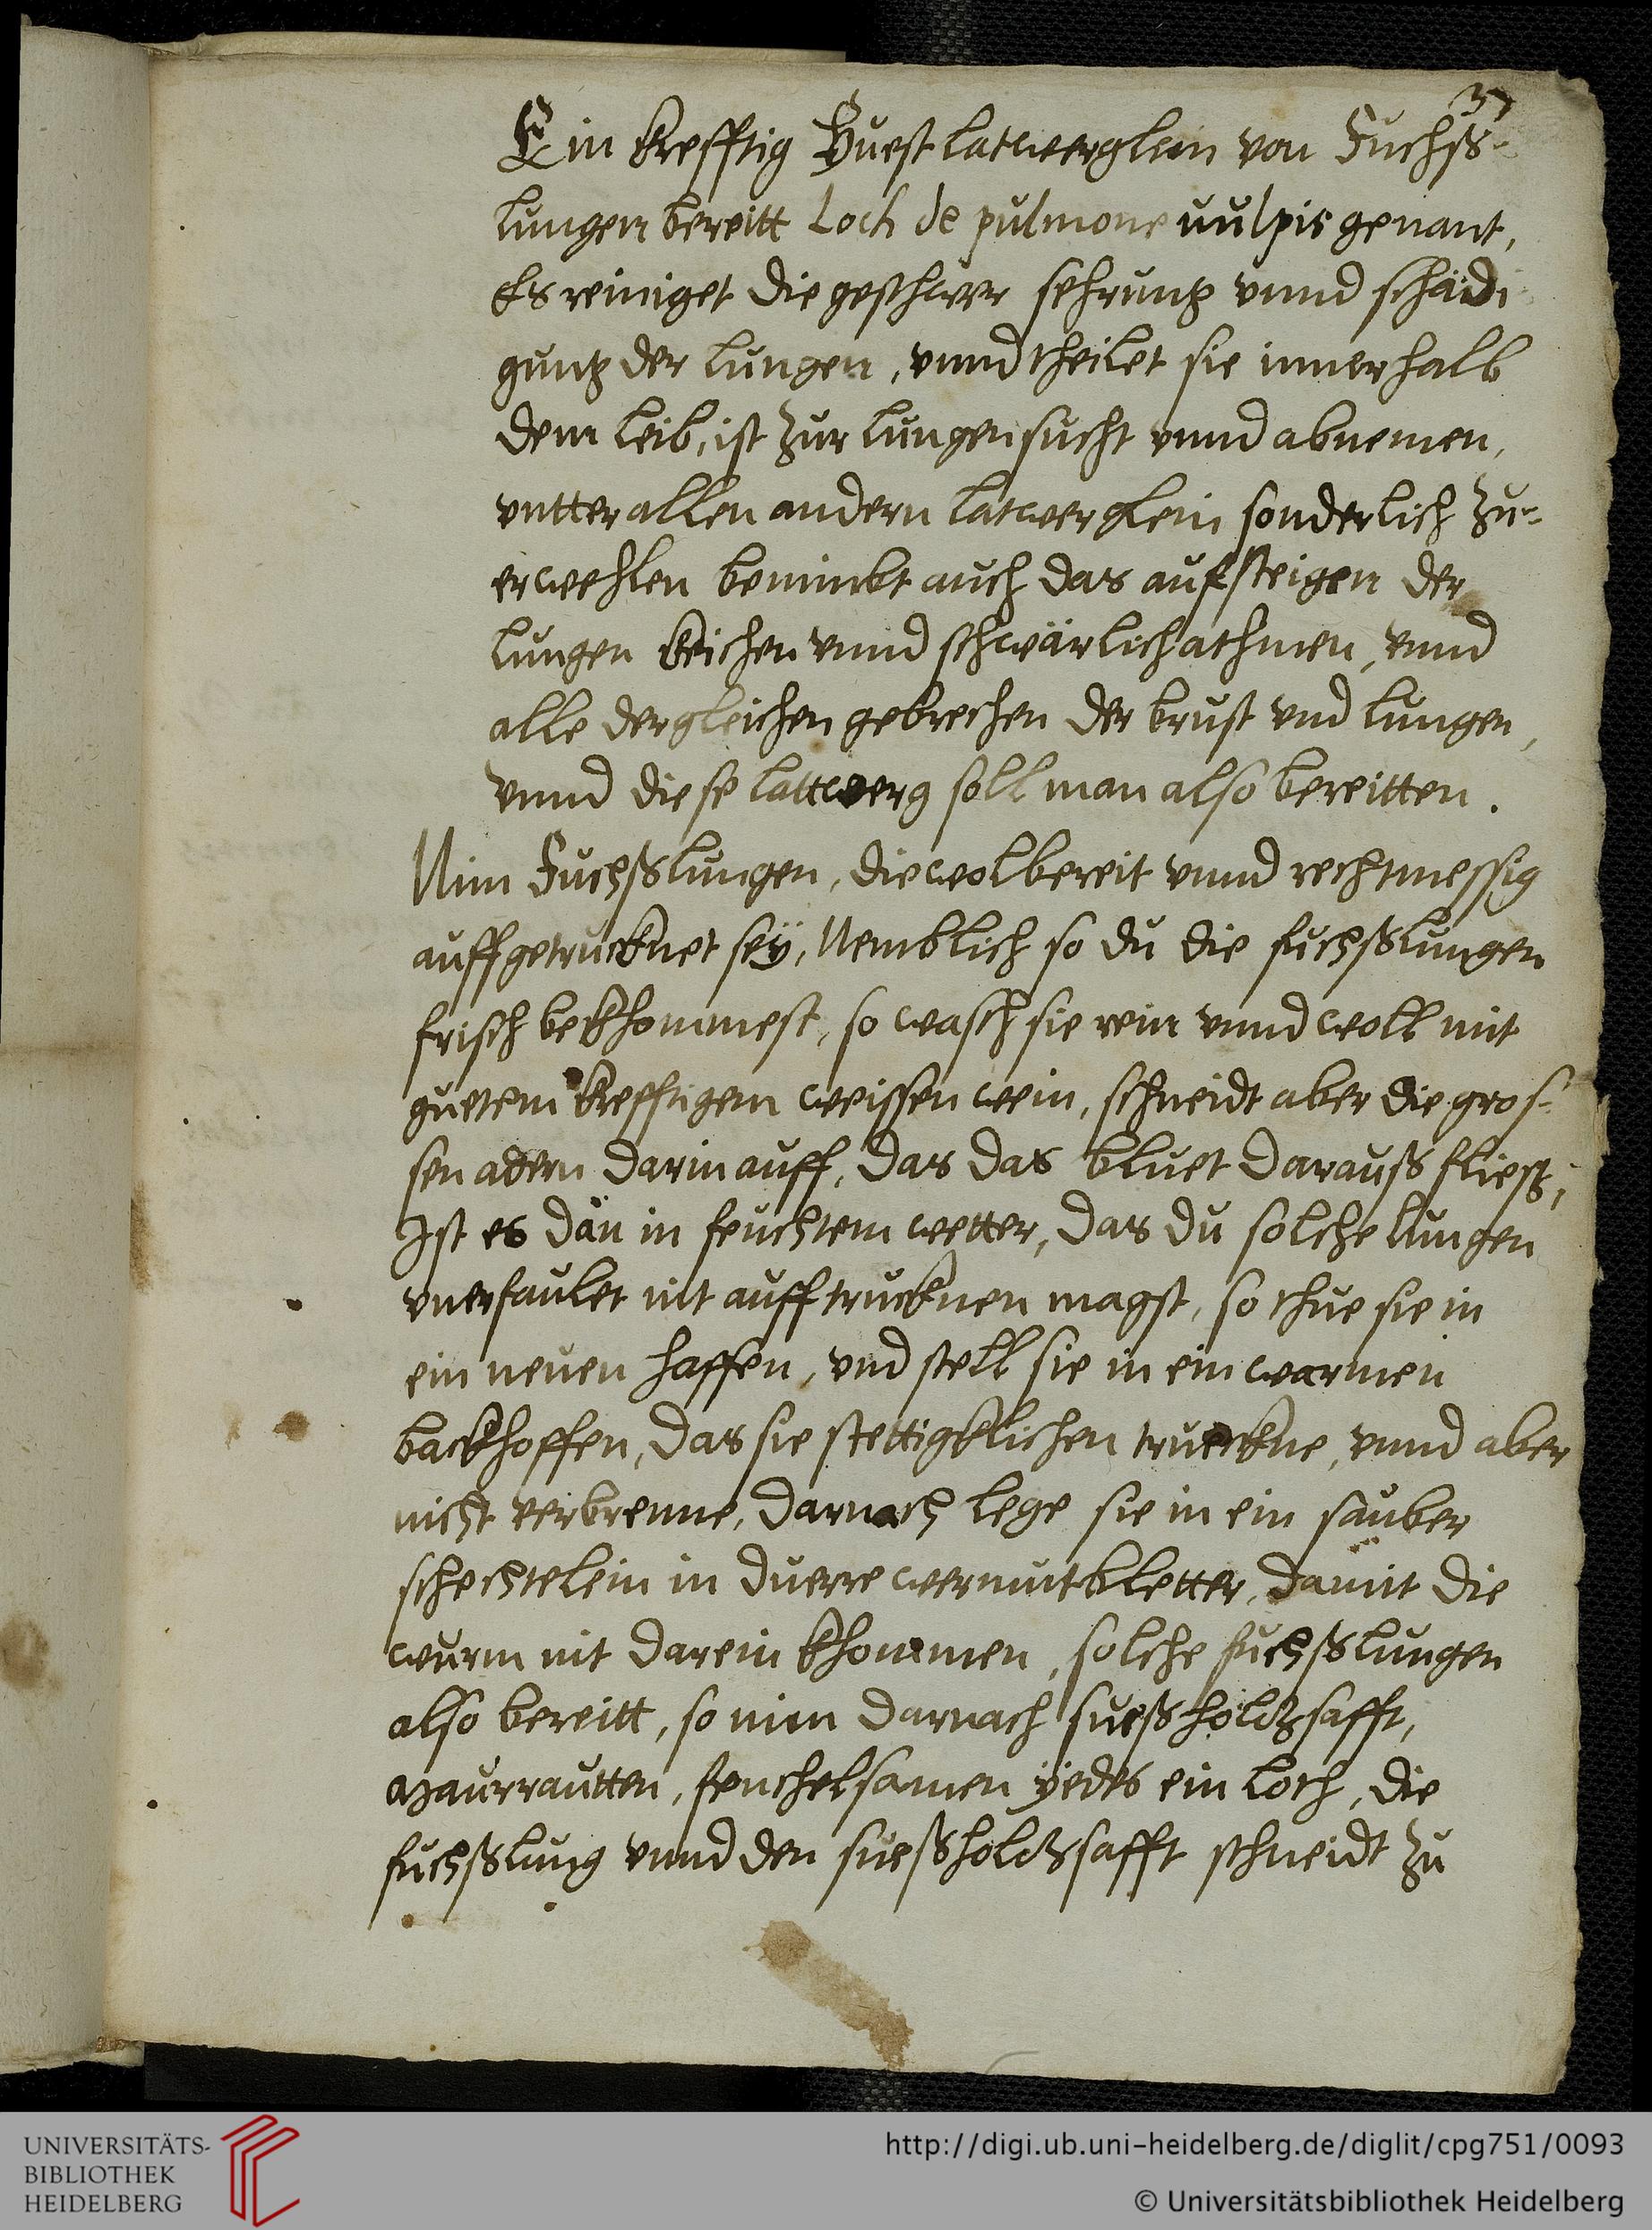 37
Ein krefftig Huest latwerglein von Fuchß-
lungen bereitt Loch de pulmone uulpis genant,
Es reiniget die geschwer sehrung vnnd schädi
gung der lungen, vnnd theilet sie innerhalb
dem leib, ist zur lungensucht vnnd abnemen,
vntter allen andern latwerglein sonderlich zu-
erwehlen benimbt auch das aufsteigen der
lungen keichen vnnd schwärlich athmen, vnnd
alle dergleichen gebrechen der brust vnd lungen,
vnnd diese lattwerg soll man also bereitten.
Nim Fuchßlungen, die wolbereit vnnd rechtmessig
auffgetrucknet seÿ, Nemblich so du die fuchßlungen
frisch bekhommest, so wasch sie rein vnnd woll mit
guetem krefftigem weissen wein, schneidt aber die gros-
sen adern darin auff, das das bluet darauß fließ,
Ist es dan in feuchtem wetter, das du solche lungen
vnerfaulet nit aufftrucknen magst, so thue sie in
ein neuen haffen, vnd stell sie in ein warmen
backhoffen, das sie stettigklichen truckne, vnnd aber
nicht verbrenne, darnach lege sie in ein sauber
schechtelein in duerre wermutbletter, damit die
wurm nit darein khommen, solche fuchßlungen
also bereitt, so nim darnach sueßholtzsafft,
Maurrautten, fenchelsamen ÿedes ein loth, die
fuchßlung vnnd den sueßholtzsafft schneidt zu
UNIVERSITÄTS-
BIBLIOTHEK
HEIDELBERG
http://digi.ub.uni-heidelberg.de/diglit/cpg751/0093
© Universitätsbibliothek Heidelberg